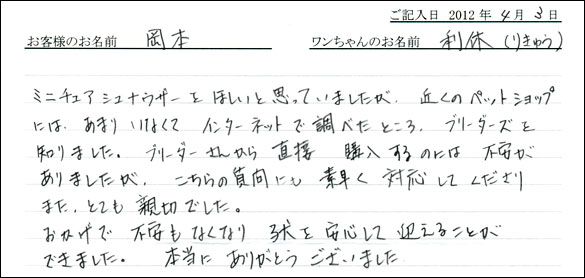 ご記入日 2012年4月3日
お客様のお名前 岡本 ワンちゃんのお名前 利休(りきゅう)
ミニチュアシュナウザーをほしいと思っていましたが、近くのペットショップ
には、あまりいなくてインターネットで調べたところ、ブリーダーズを
知りました。ブリーダーさんから直接購入するのには不安が
ありましたが、こちらの質問にも素早く対応してくださり
また、とても親切でした。
おかげで不安もなくなり子犬を安心して迎えることが
できました。本当にありがとうございました